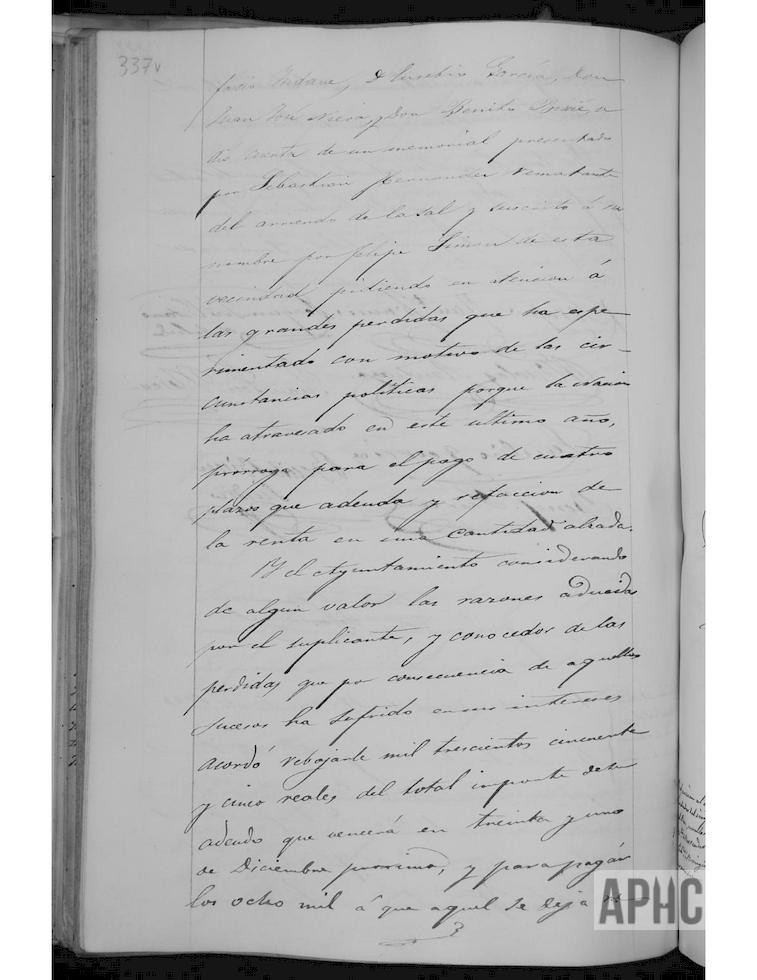 337v
D Eusebio García, Don
Juan José Neira, y Don Benito, se
dió cuenta de un memorial presentado
por Sebastian Hernandez rematante
del arriendo de la sal y suscrito á su
nombre por Felipe Simon de esta
vecindad pidiendo en atencion á
las grandes perdidas que ha espe-
rimentado con motivo de las cir-
cunstancias políticas porque la nacion
ha atravesado en este ultimo año,
prorroga para el pago de cuatro
plazos que adeuda y refaccion de
la renta en una cantidad alzada.
Y el Ayuntamiento considerando
de algun valor las razones aducidas
por el suplicante, y conocedor de las
perdidas que por consecuencia de aquellos
sucesos ha sufrido en sus intereses
acordó rebajarle mil trescientos cincuenta
y cinco reales del total importe de su
adeudo que vencerá en treinta y uno
de Diciembre proximo, y para pagar
los ocho mil á que aquel se deja re-
APHC